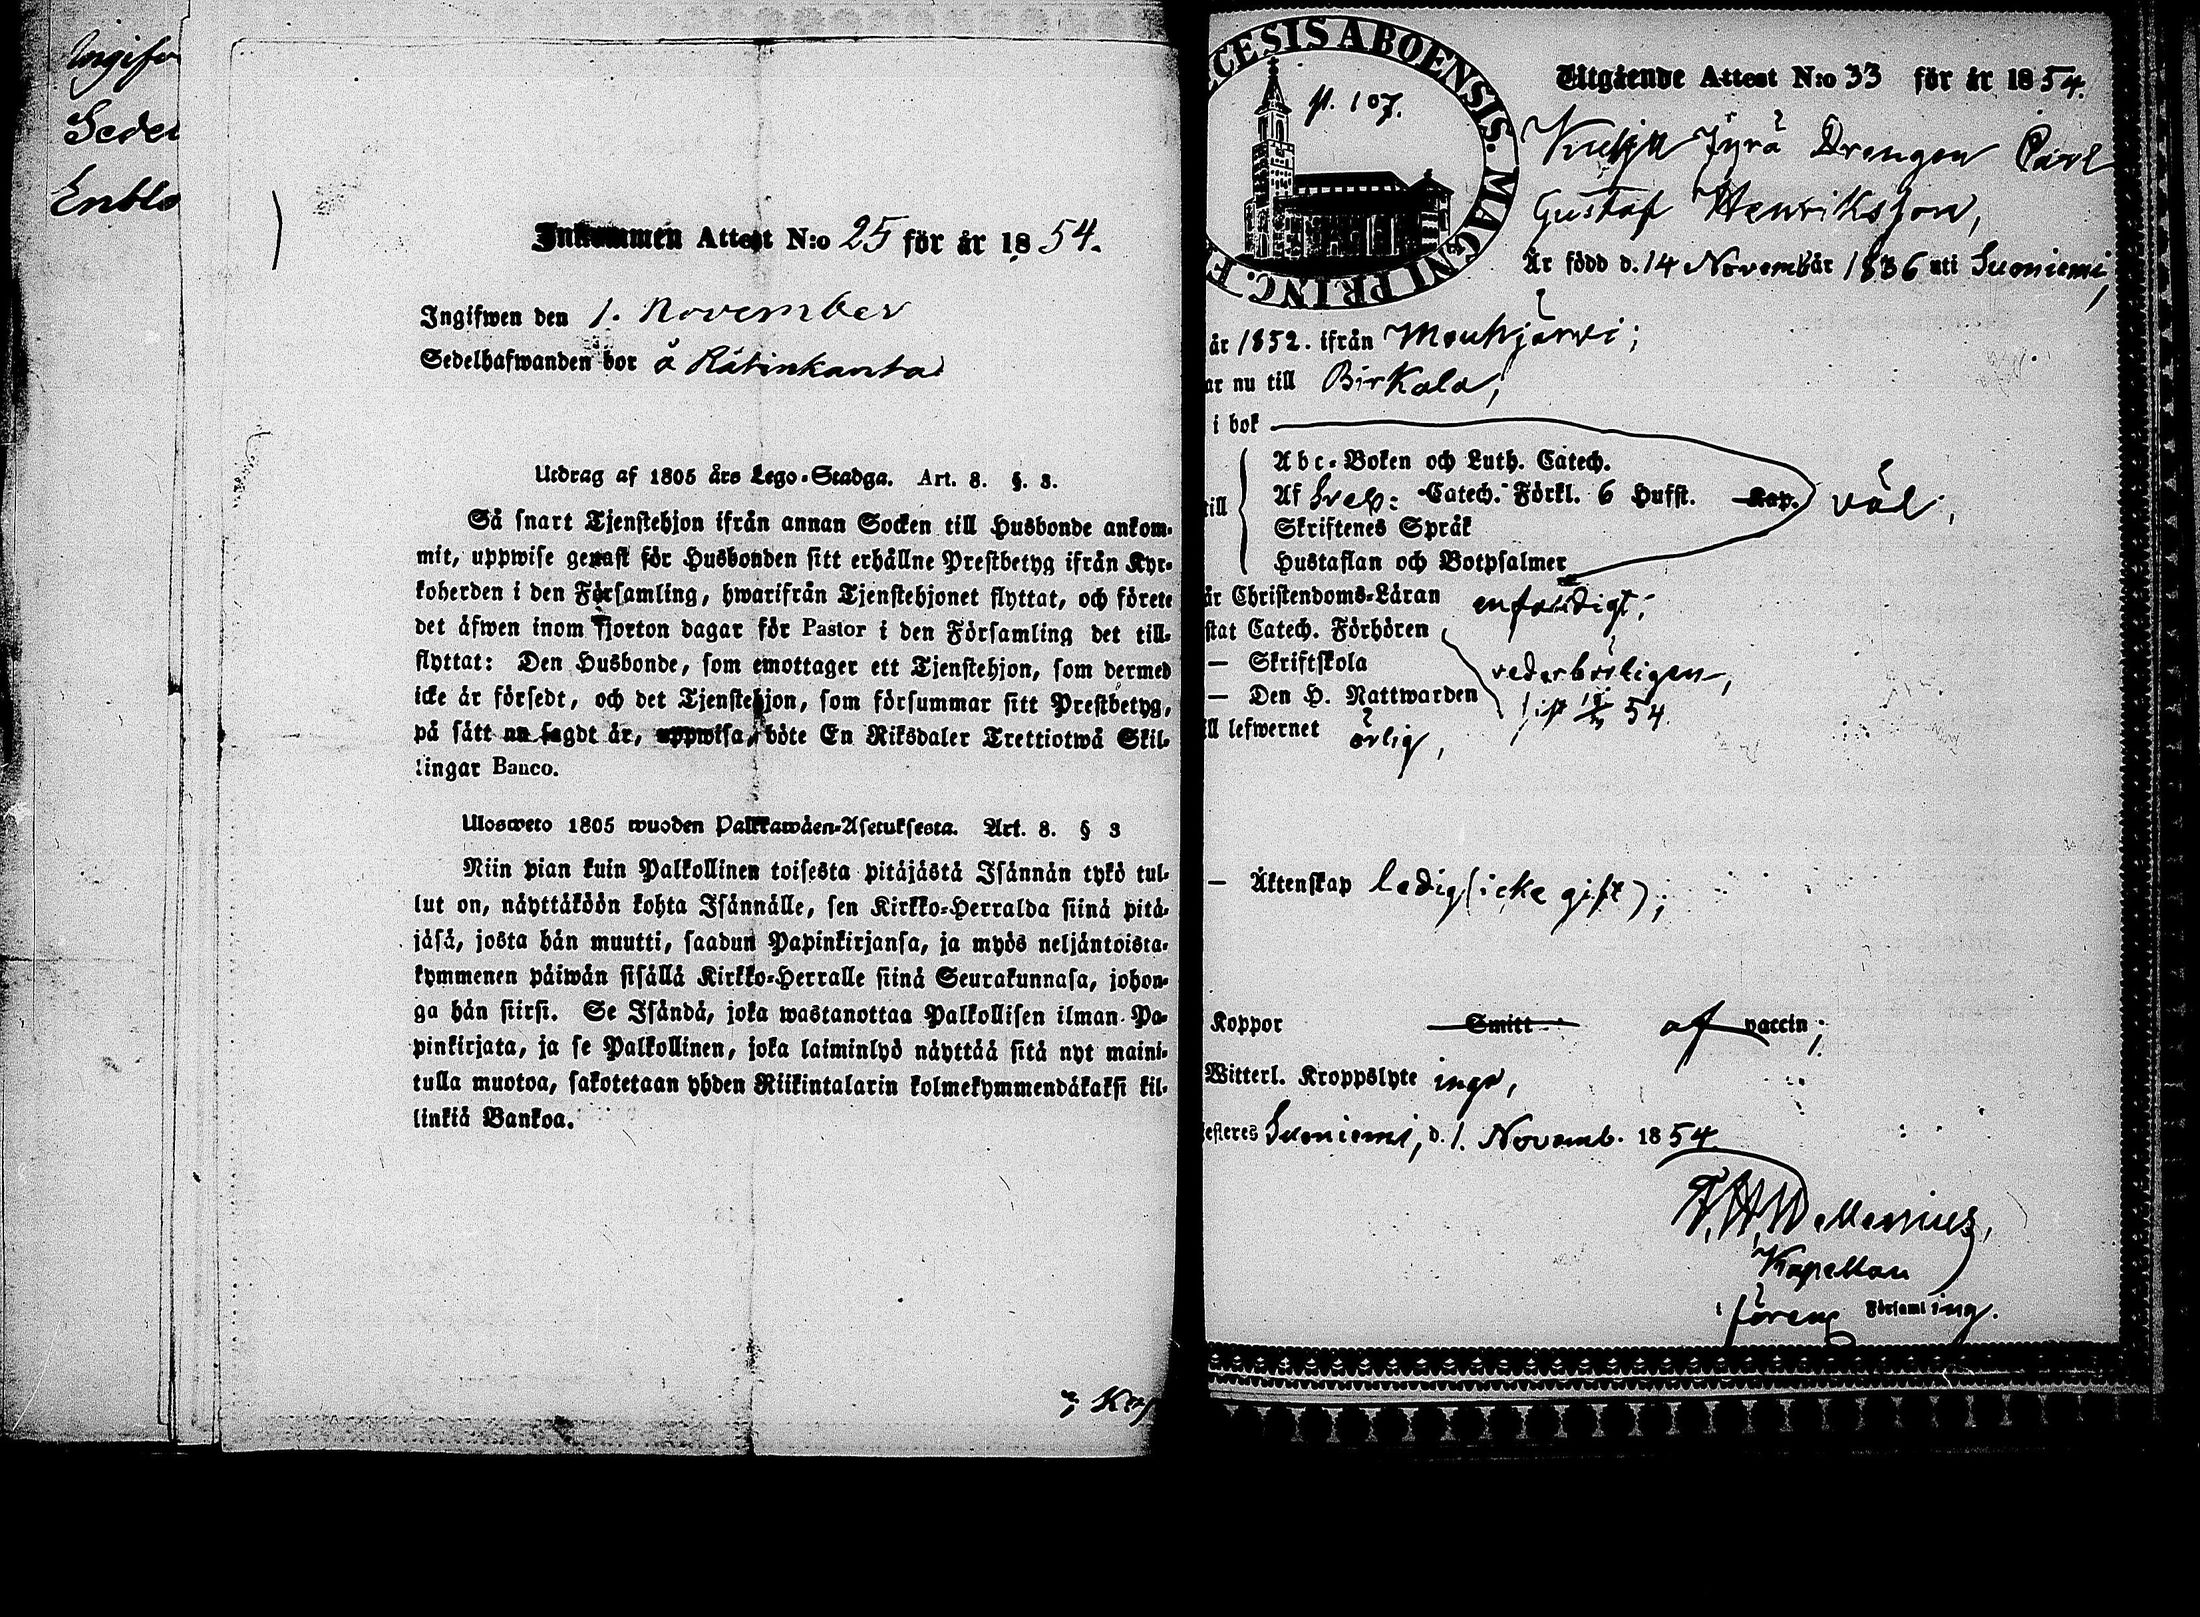 Ingifw
Sedel
Enblo
Inkommen Attest N:o 25 för år 1854.
Ingifwen den 1. November
Sedelhafwanden bor å Rätinkanta
Utdrag af 1805 års Lego-Stadga. Art. 8. §. 3.
Så snart Tjenstehjon ifrån annan Socken till Husbonde ankom-
mit, uppwise genast för Husbonden sitt erhållne Prestbetyg ifrån Kyr-
koherden i den Församling, hwarifrån Tjenstehjonet flyttat, och förete
det äfwen inom fjorton dagar för Pastor i den Församling det till-
flyttat: Den Husbonde, som emottager ett Tjenstehjon, som dermed
icke är försedt, och det Tjenstehjon, som försummar sitt Prestbetyg,
på sätt nu sagdt är, uppwisa, böte En Riksdaler Trettiotwå Skil-
lingar Banco.
Ulosweto 1805 wuoden Palkkawäen-Asetuksesta. Art. 8. § 3
Niin pian kuin Palkollinen toisesta pitäjästä Isännän tykö tul-
lut on, näyttäköön kohta Isännälle, sen Kirkko-Herralda siinä pitä-
jäsä, josta hän muutti, saadun Papinkirjansa, ja myös neljäntoista-
kymmenen päiwän sisällä Kirkko-Herralle siinä Seurakunnasa, johon-
ga hän siirsi. Se Isändä, joka wastanottaa Palkollisen ilman Pa-
pinkirjata, ja se Palkollinen, joka laiminlyö näyttää sitä nyt maini-
tulla muotoa, sakotetaan yhden Riikintalarin kolmekymmendäkaksi kil-
linkiä Bankoa.
CESIS ABOENSIS. MAGNI PRINC. F
p. 107.
Utgående Attest N:o 33 för år 1854.
Kulju Jyrä Drengen Carl
Gustaf Henriksson,
Är född d. 14 Novemb år 1836 uti Suoniemi,
år 1852. ifrån Mouhijärwi;
ar nu till Birkala,
i bok
Abc-Boken och Luth. Catech.
till Af Sveb: Catech. Förkl. 6 Hufst. Kap. väl,
Skriftenes Språk
Hustaflan och Botpsalmer
år Christendoms-Läran enfaldigt;
stat Catech. Förhören
— Skriftskola vederbörligen,
— Den H. Nattwarden 54.
ll lefwernet ärlig,
— Äktenskap ledig (icke gift);
Koppor Smitt af vaccin;
Witterl. Kroppslyte inga,
esteres Suoniemi, d. 1. Novemb. 1854.
Wallenius,
Kapellan
i förens Församling.